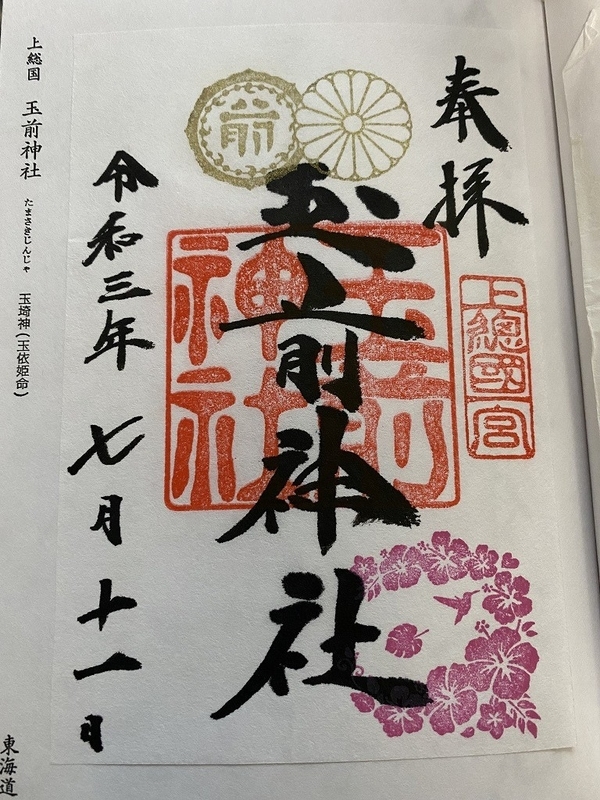 奉拝
上總國一宮
前
玉前神社
玉前神社
令和三年七月十一日
上総国 玉前神社 たまさきじんじゃ 玉埼神(玉依姫命)
東海道